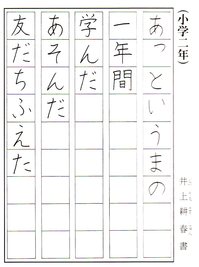 (小学二年)
あっというまの
一年間
学んだ
あそんだ
友だちふえた
井上耕春書